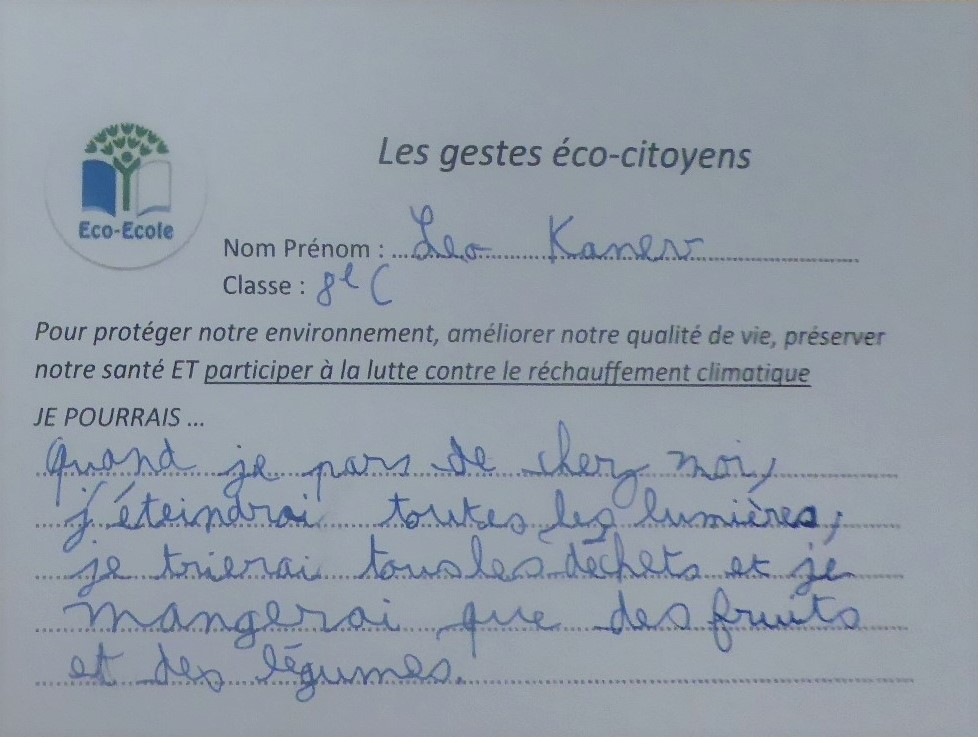 Les gestes éco-citoyens
Eco-Ecole
Nom Prénom : Leo Kanev
Classe : 8e C
Pour protéger notre environnement, améliorer notre qualité de vie, préserver
notre santé ET participer à la lutte contre le réchauffement climatique
JE POURRAIS ...
Quand je pars de cherz moi,
j'éteindrai toutes les lumières,
je trierai tous les déchets et je
mangerai que des fruits
et des légumes.